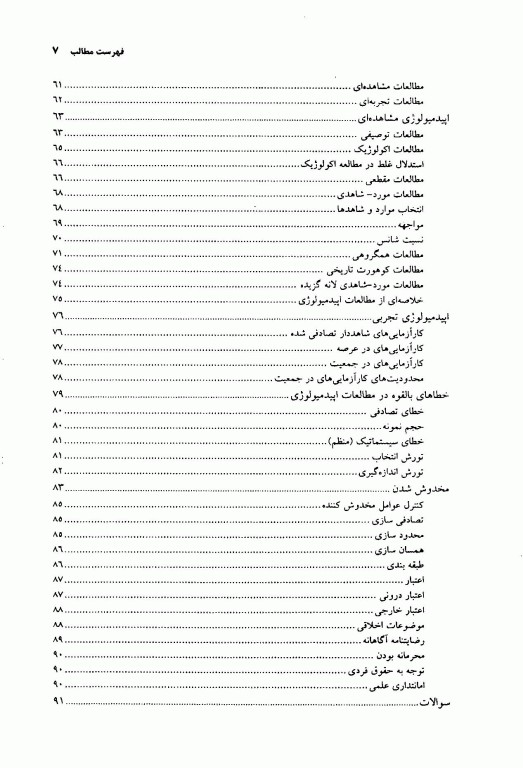 فهرست مطالب ۷
مطالعات مشاهده‌ای ۶۱
مطالعات تجربه‌ای ۶۲
اپیدمیولوژی مشاهده‌ای ۶۳
مطالعات توصیفی ۶۳
مطالعات اکولوژیک ۶۵
استدلال غلط در مطالعه اکولوژیک ۶۶
مطالعات مقطعی ۶۶
مطالعات مورد- شاهدی ۶۸
انتخاب موارد و شاهدها ۶۸
مواجهه ۶۹
نسبت شانس ۷۰
مطالعات همگروهی ۷۱
مطالعات کوهورت تاریخی ۷۴
مطالعات مورد-شاهدی لانه گزیده ۷۴
خلاصه‌ای از مطالعات اپیدمیولوژی ۷۵
اپیدمیولوژی تجربی ۷۶
کارآزمایی‌های شاهددار تصادفی شده ۷۶
کارآزمایی‌های در عرصه ۷۷
کارآزمایی‌های در جمعیت ۷۸
محدودیت‌های کارآزمایی‌های در جمعیت ۷۸
خطاهای بالقوه در مطالعات اپیدمیولوژی ۷۹
خطای تصادفی ۸۰
حجم نمونه ۸۰
خطای سیستماتیک (منظم) ۸۱
تورش انتخاب ۸۱
تورش اندازه‌گیری ۸۲
مخدوش شدن ۸۳
کنترل عوامل مخدوش کننده ۸۵
تصادفی سازی ۸۵
محدود سازی ۸۵
همسان سازی ۸۶
طبقه بندی ۸۶
اعتبار ۸۷
اعتبار درونی ۸۷
اعتبار خارجی ۸۸
موضوعات اخلاقی ۸۸
رضایتنامه آگاهانه ۸۹
محرمانه بودن ۹۰
توجه به حقوق فردی ۹۰
امانتداری علمی ۹۰
سوالات ۹۱